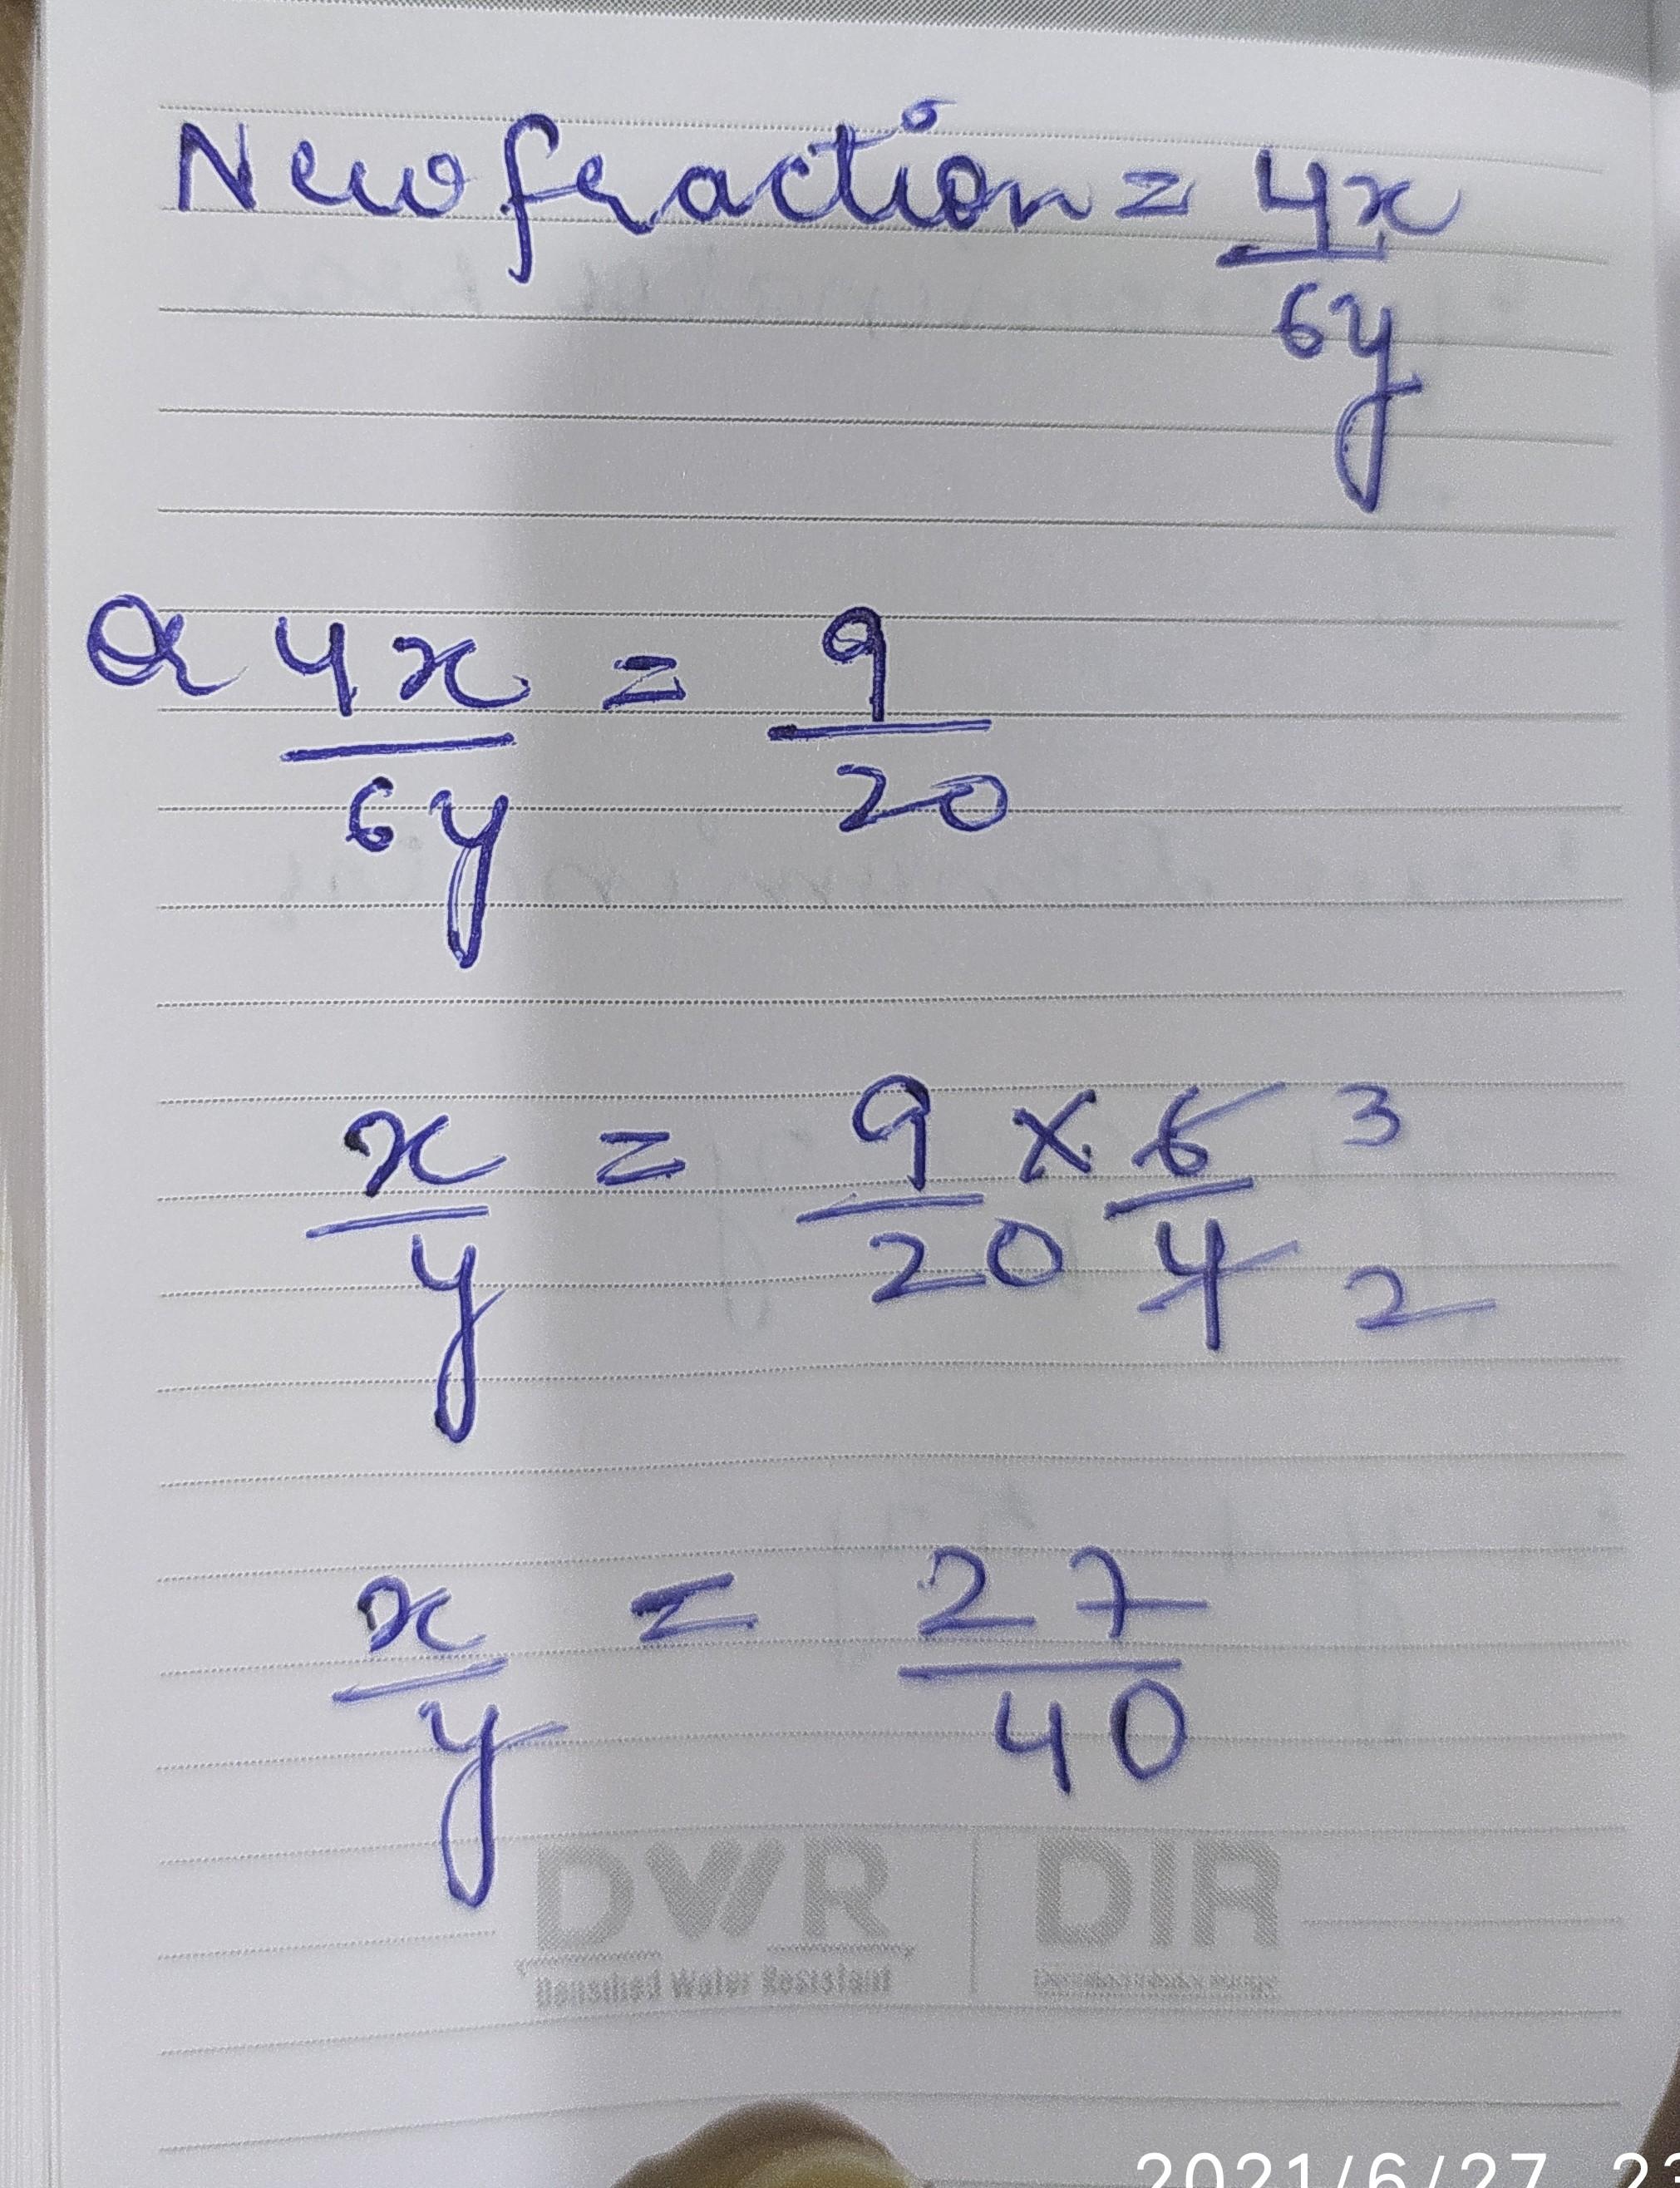 New fraction = 4x/6y
Q 4x/6y = 9/20
x/y = 9/20 × 6/4 3 2
x/y = 27/40
DWR | DIR
Densified Water Resistant
2021/6/27 23